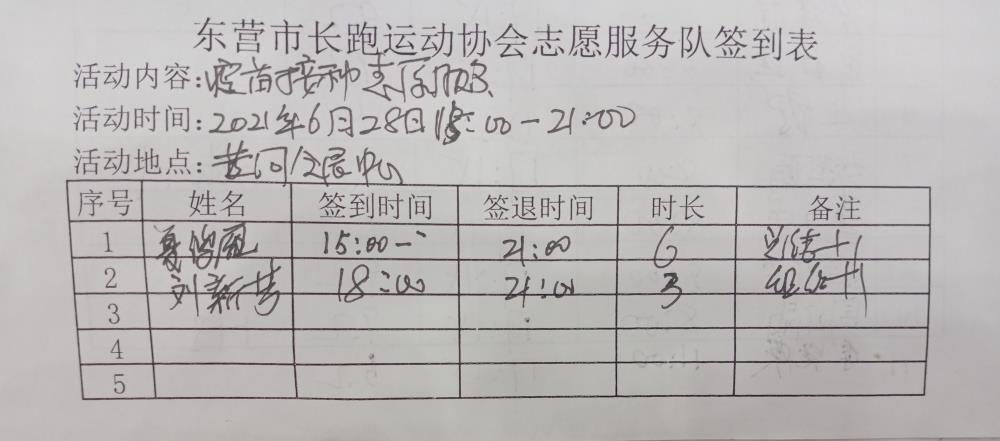 东营市长跑运动协会志愿服务队签到表
活动内容:疫苗接种志愿服务
活动时间:2021年6月28日15:00-21:00
活动地点:黄河会展中心
序号 姓名 签到时间 签退时间 时长 备注
1 15:00- 21:00 6 总结+1
2 刘新 18:00 21:00 3 组织+1
3
4
5